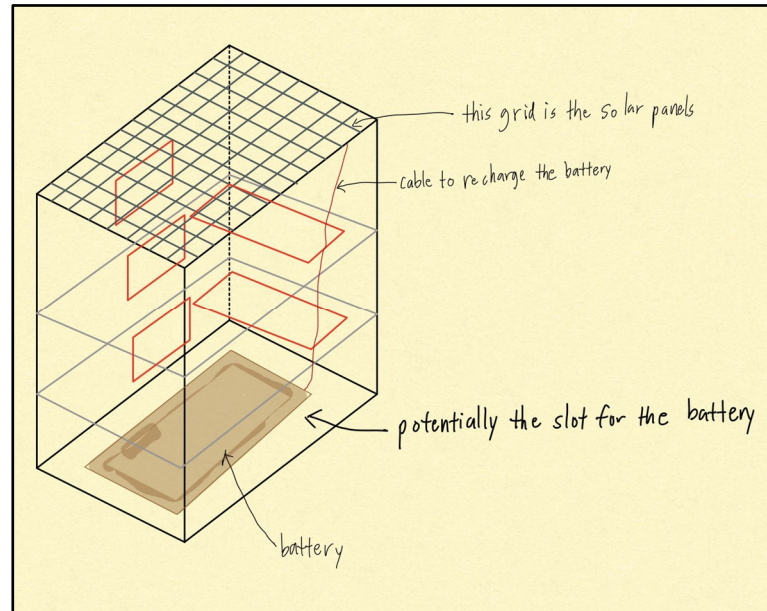 this grid is the solar panels
cable to recharge the battery
potentially the slot for the battery
battery